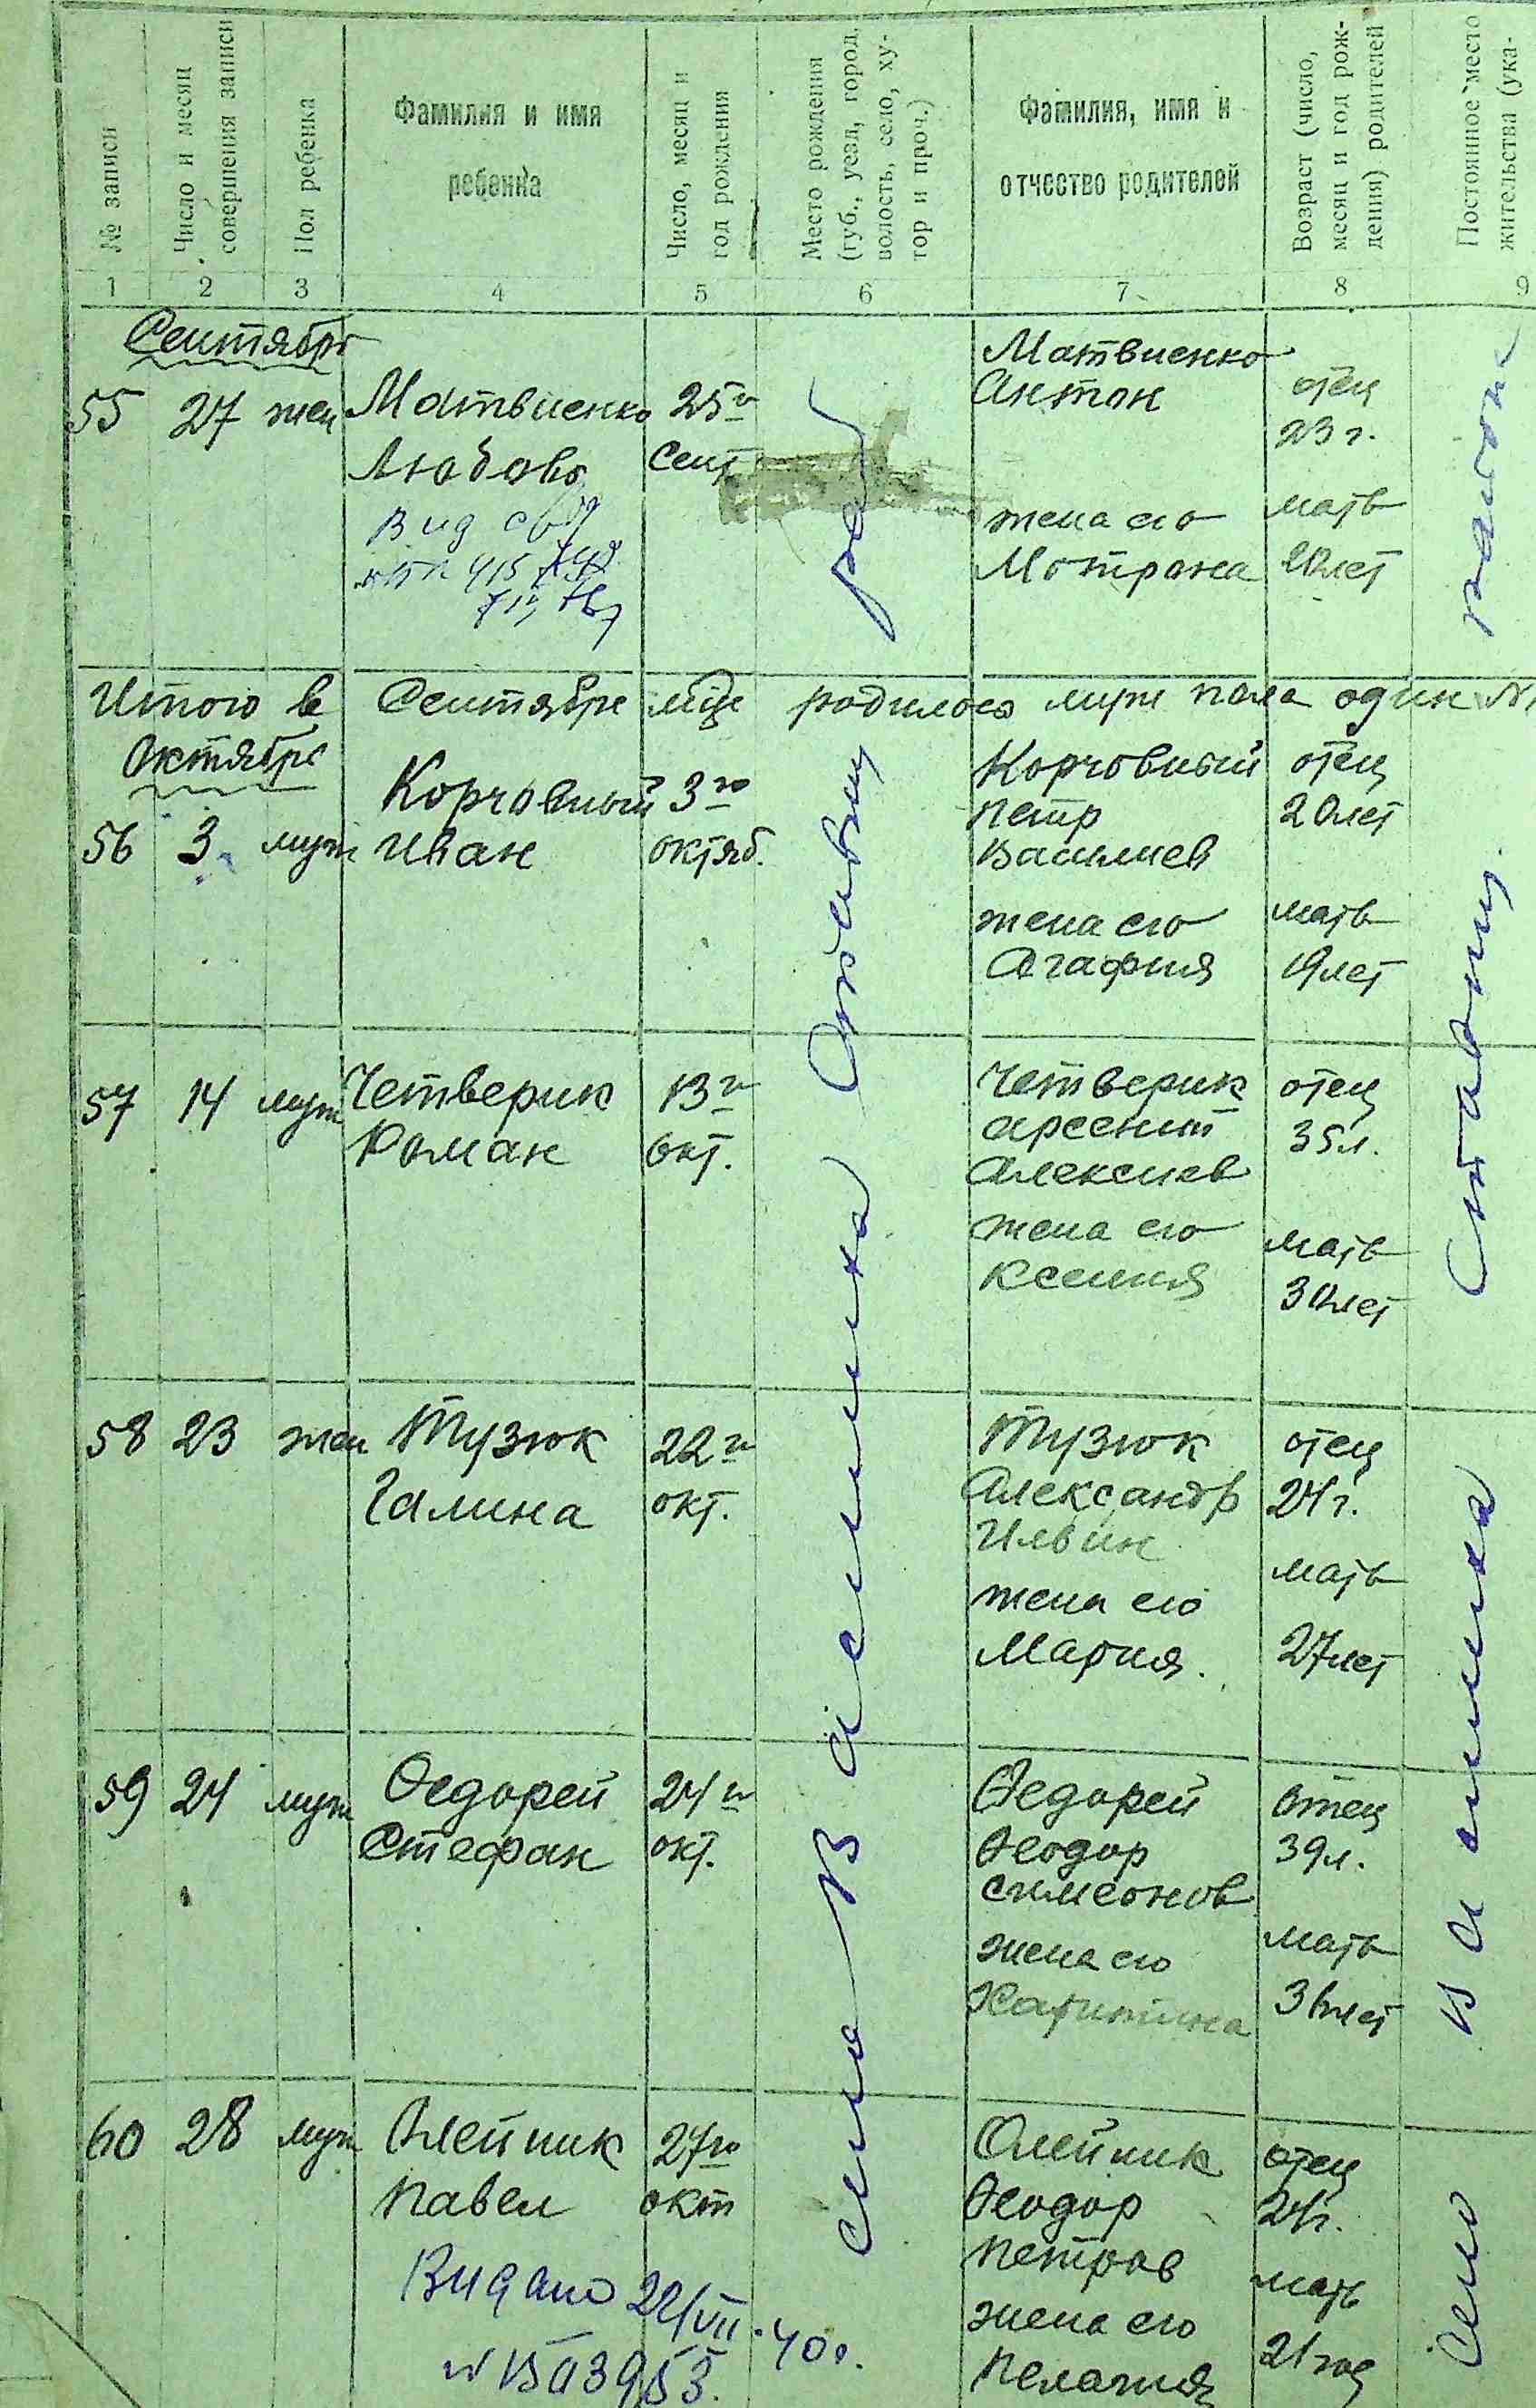 № записи
Число и месяц
совершения записи
Пол ребенка
Фамилия и имя
ребенка
Число, месяц и
год рождения
Место рождения
(губ., уезд, город,
волость, село, ху-
тор и проч.)
Фамилия, имя и
отчество родителей
Возраст (число,
месяц и год рож-
дения) родителей
Постоянное место
жительства (ука-
1 2 3 4 5 6 7 8 9
Сентябрь
55 27 жен
Матвиенко
Любовь
25го
Сент
Матвиенко
Антон
жена его
Мотрона
отец
23 г.
мать
20 лет
Итого в Сентябре м-це родилось муж пола один
Октябрь
56 3 муж
Корчовный
Иван
3го
октяб.
Корчовный
Петр
Василиев
жена его
Агафия
отец
20 лет
мать
19 лет
57 14 муж
Четверик
Роман
13го
окт.
Четверик
Арсений
Алексиев
жена его
Ксения
отец
35 л.
мать
30 лет
58 23 жен
Тузюк
Галина
22го
окт.
Тузюк
Александр
Ильин
жена его
Мария.
отец
24 г.
мать
27 лет
59 24 муж
Федорей
Стефан
24го
окт.
Федорей
Феодор
Симеонов
жена его
Харитина
отец
39 л.
мать
36 лет
60 28 муж
Олейник
Павел
27го
окт
Видано 22/VII.40г.
Олейник
Феодор
Петров
жена его
Пелагия
отец
24г.
мать
21 год
село Васишка Ставищ ра
Село Васишка Ставищ. района